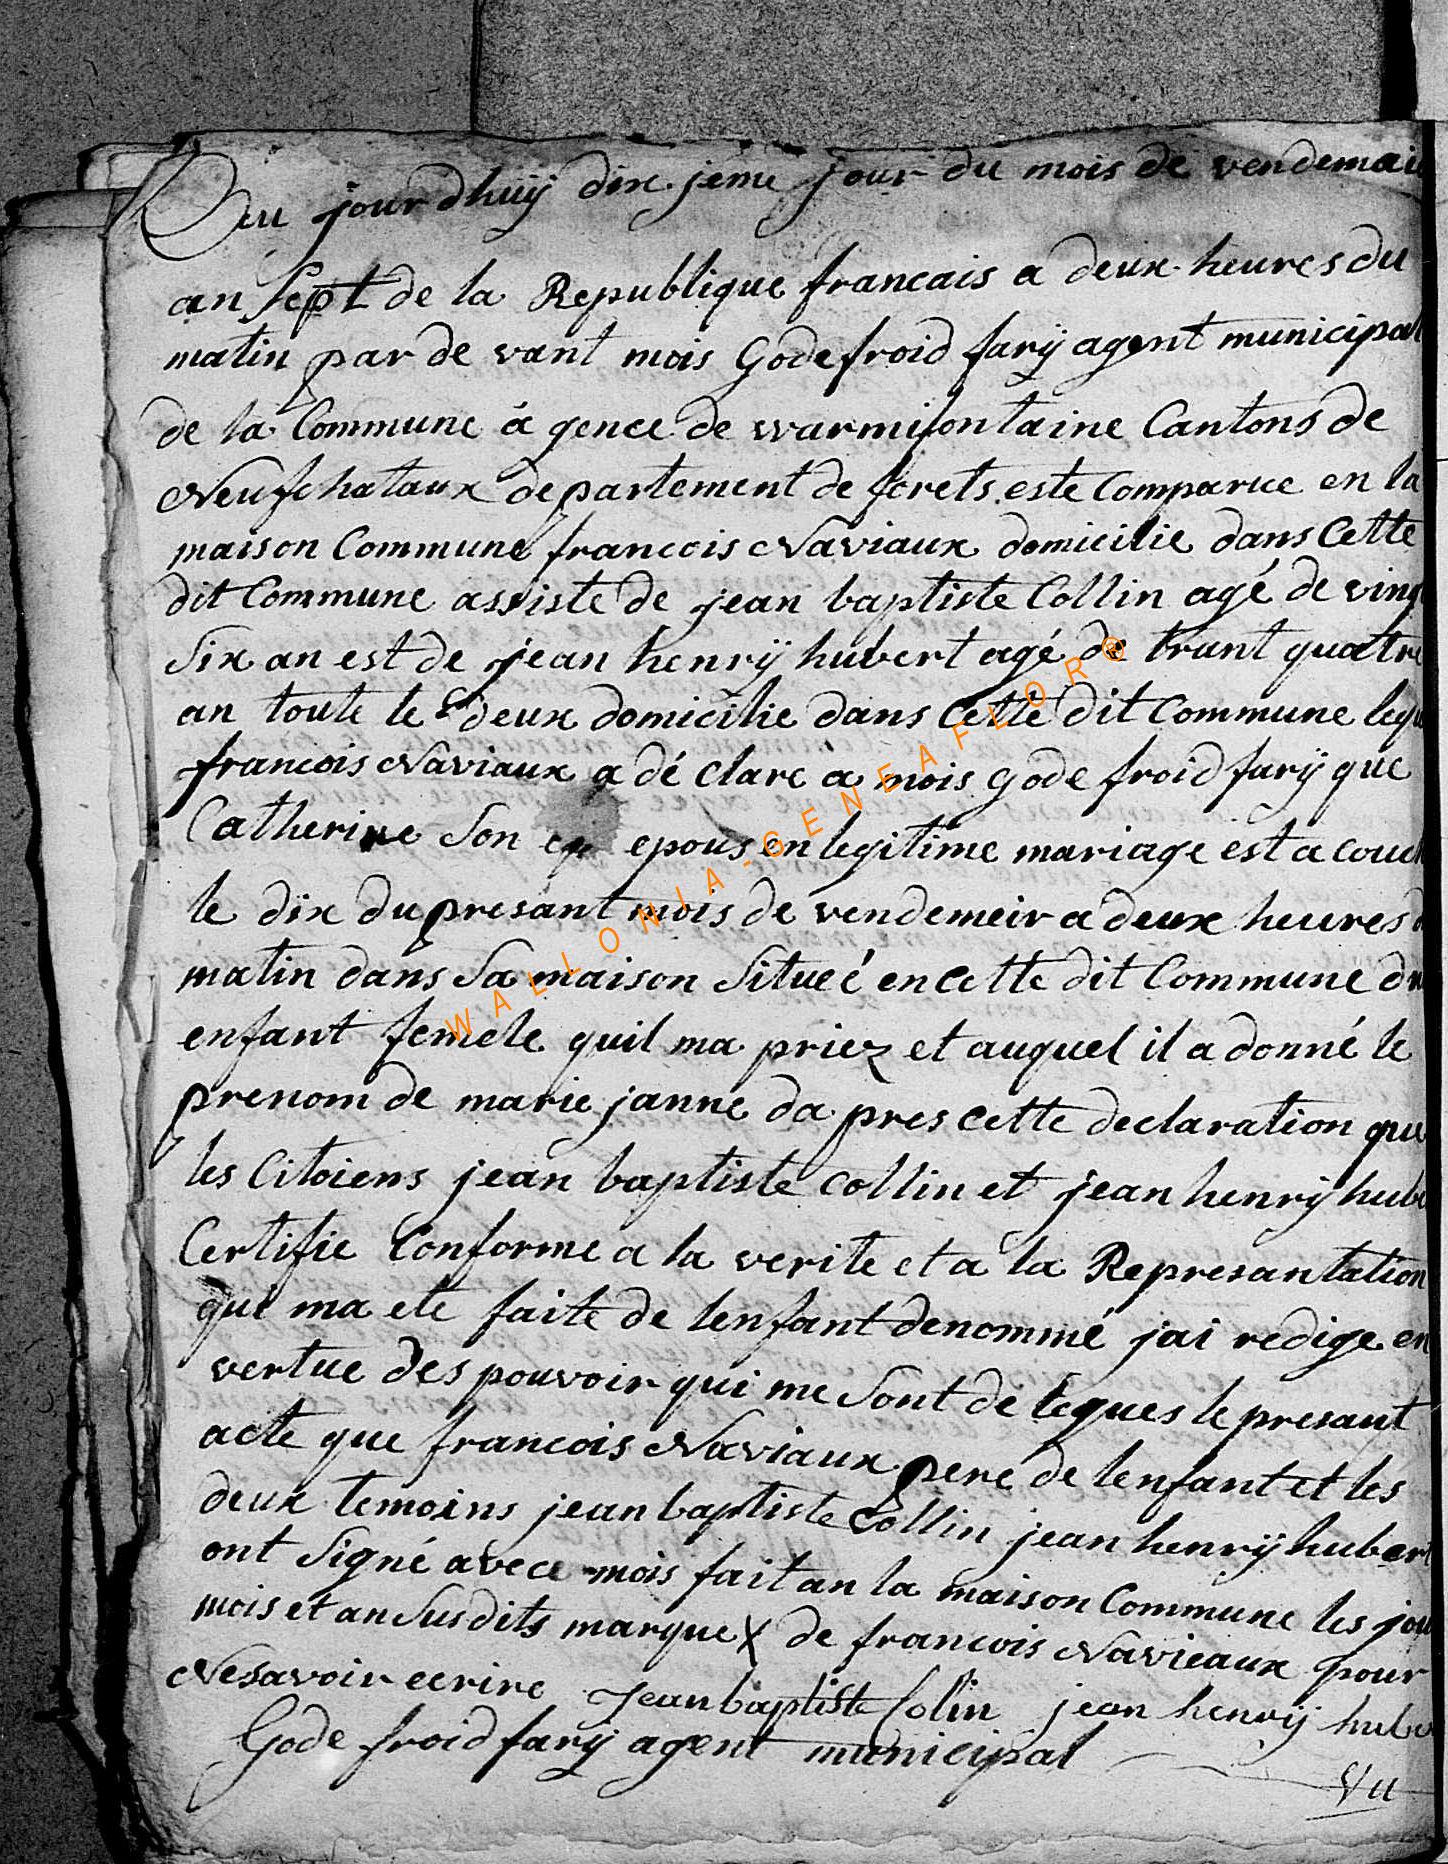 au jourdhuÿ dixjeme jour du mois de vendemai
an Sept de la Republique francais a deux heures du
matin par de vant mois Godefroid farÿ agent municipal
de la Commune á gence de warmifontaine Cantons de
Neufchataux departement de forets este Comparue en la
maison Commune francois Naviaux domicilie dans Cette
dit Commune assiste de jean baptiste Collin agé de ving
Six an est de jean henrÿ hubert agé de trant quatre
an toute les deux domicilie dans Cette dit Commune lequ
francois Naviaux a dé clare a mois gode froid farÿ que
Catherine Son epous en legitime mariage est a couch
le dix du presant mois de vendemeir a deux heures d
matin dans Sa maison Situeé en cette dit Commune dun
enfant femele quil ma priez et auquel il a donné le
prenom de marie janne da pres cette declaration que
les Citoiens jean baptiste collin et jean henrÿ hube
Certifie Conforme a la verite et a la Represantation
qui ma ete faite de lenfant denommé jai redige en
vertue des pouvoir qui me Sont de legues le presant
acte que francois Naviaux pere de lenfant et les
deux temoins jean baptiste Collin jean henrÿ hubert
ont Signé avece mois fait an la maison Commune les jou
mois et an Susdits marque X de francois Navieaux pour
Nesavoir ecrire Jean baptiste Colin jean henrÿ hube
Gode froid farÿ agent municipal
Vu
WALLONIA-GENEAFLOR®